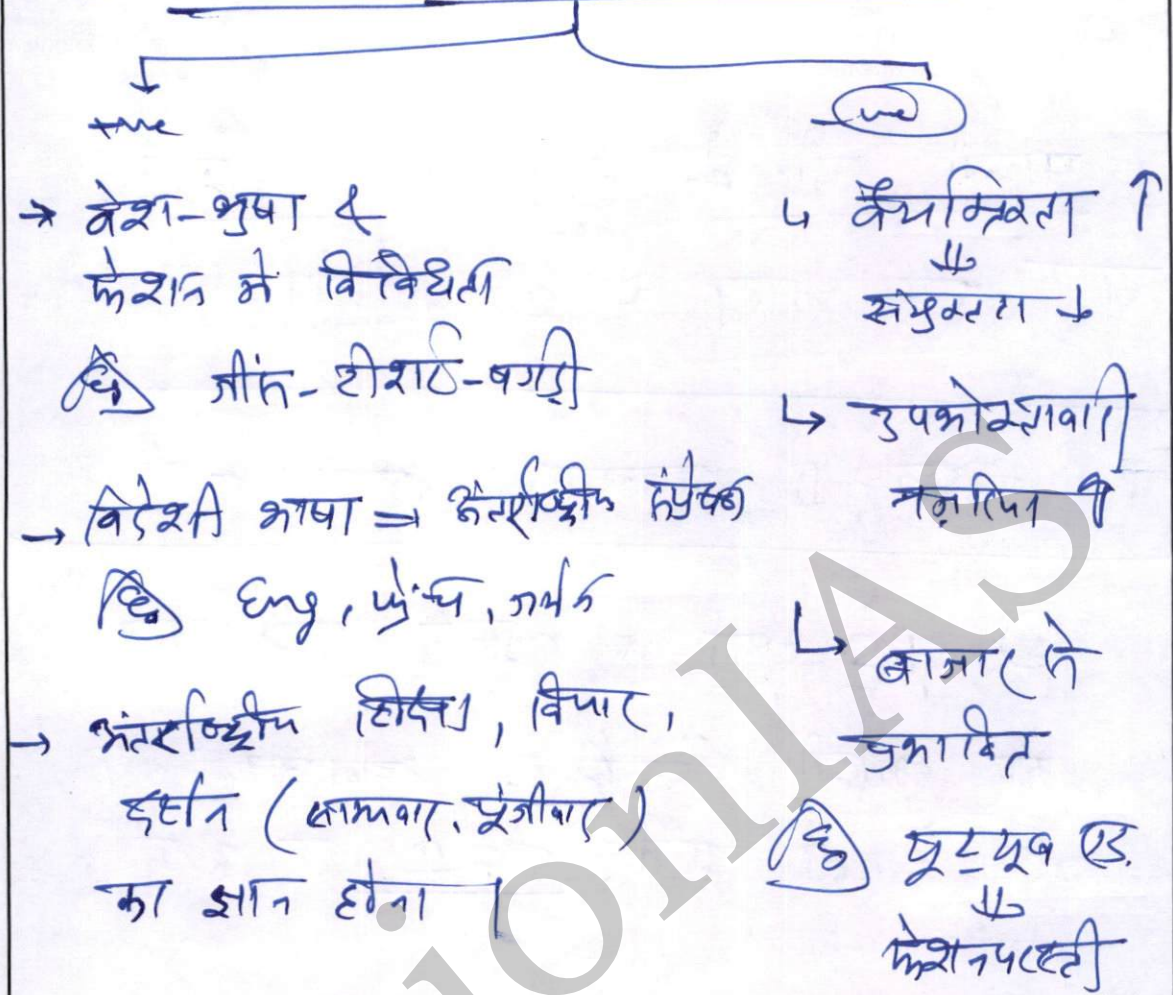 +ve
→ वेश-भुषा &
फेशन मे विविधता
Eg जींस-टीशर्ट-पगड़ी
→ विदेशी भाषा ⇒ अंतर्राष्ट्रीय संप्रेषण
Eg Eng, फ्रेंच, जर्मन
→ अंतर्राष्ट्रीय, विचार,
दर्शन (साम्यवाद, पूंजीवाद)
का ज्ञान होना।
-ve
↳ वैयक्तिकता ↑
⇓
संयुक्तता ↓
↳ उपभोक्तावादी
↑
↳ बाजार से
प्रभावित
Eg यूट्यूब एड.
⇓
फेशनपरस्ती
ionIAS